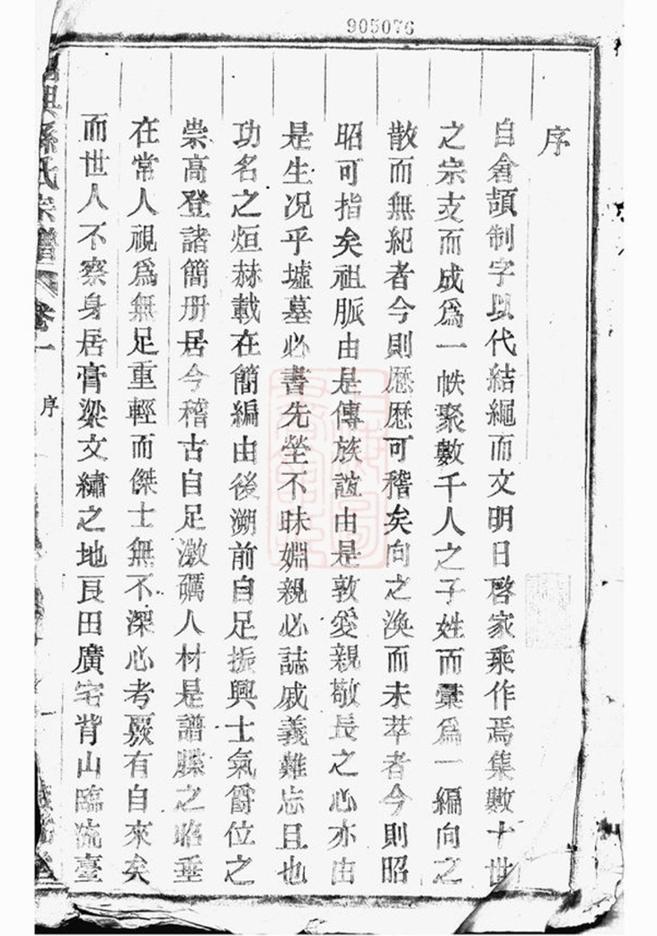 905076
序
自倉頡制字以代結繩而文明日啓家乘作焉集數十世
之宗支而成爲一帙聚數千人之子姓而彙爲一編向之
散而無紀者今則歷歷可稽矣向之渙而未萃者今則昭
昭可指矣祖脈由是傳族誼由是敦愛親敬長之心亦由
是生况乎墟墓必書先塋不昧婣親必誌戚義難忘且也
功名之烜赫載在簡編由後溯前自足振興士氣爵位之
崇高登諸簡册居今稽古自足激礪人材是譜牒之昭垂
在常人視爲無足重輕而傑士無不深心考覈有自來矣
而世人不察身居膏粱文繡之地良田廣宅背山臨流臺
興孫氏宗譜 卷一 序